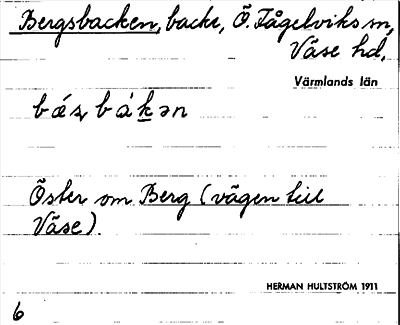 Bergsbacken, backe, Ö. Fågelviks sn,
Väse hd.
Värmlands län
Öster om Berg (vägen till
Väse).
HERMAN HULTSTRÖM 1911
6